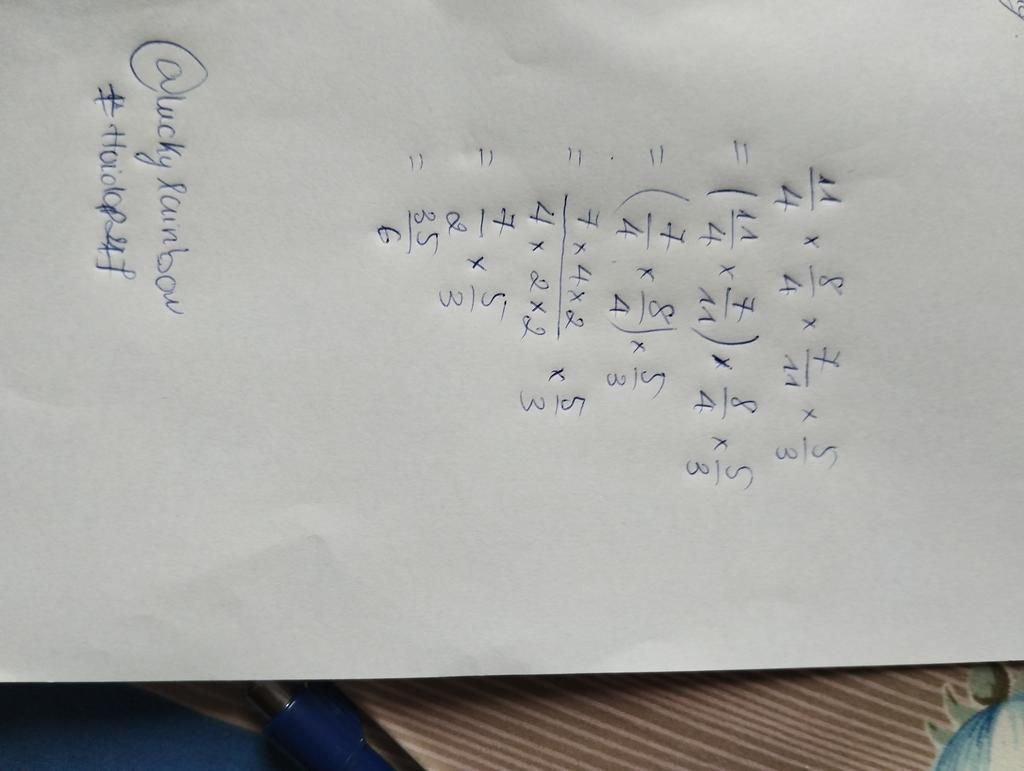 11/4 × 8/4 × 7/11 × 5/3
= (11/4 × 7/11) × 8/4 × 5/3
= (7/4 × 8/4) × 5/3
= 7 × 4 × 2 / 4 × 2 × 2 × 5/3
= 7/2 × 5/3
= 35/6
@lucky rainbow